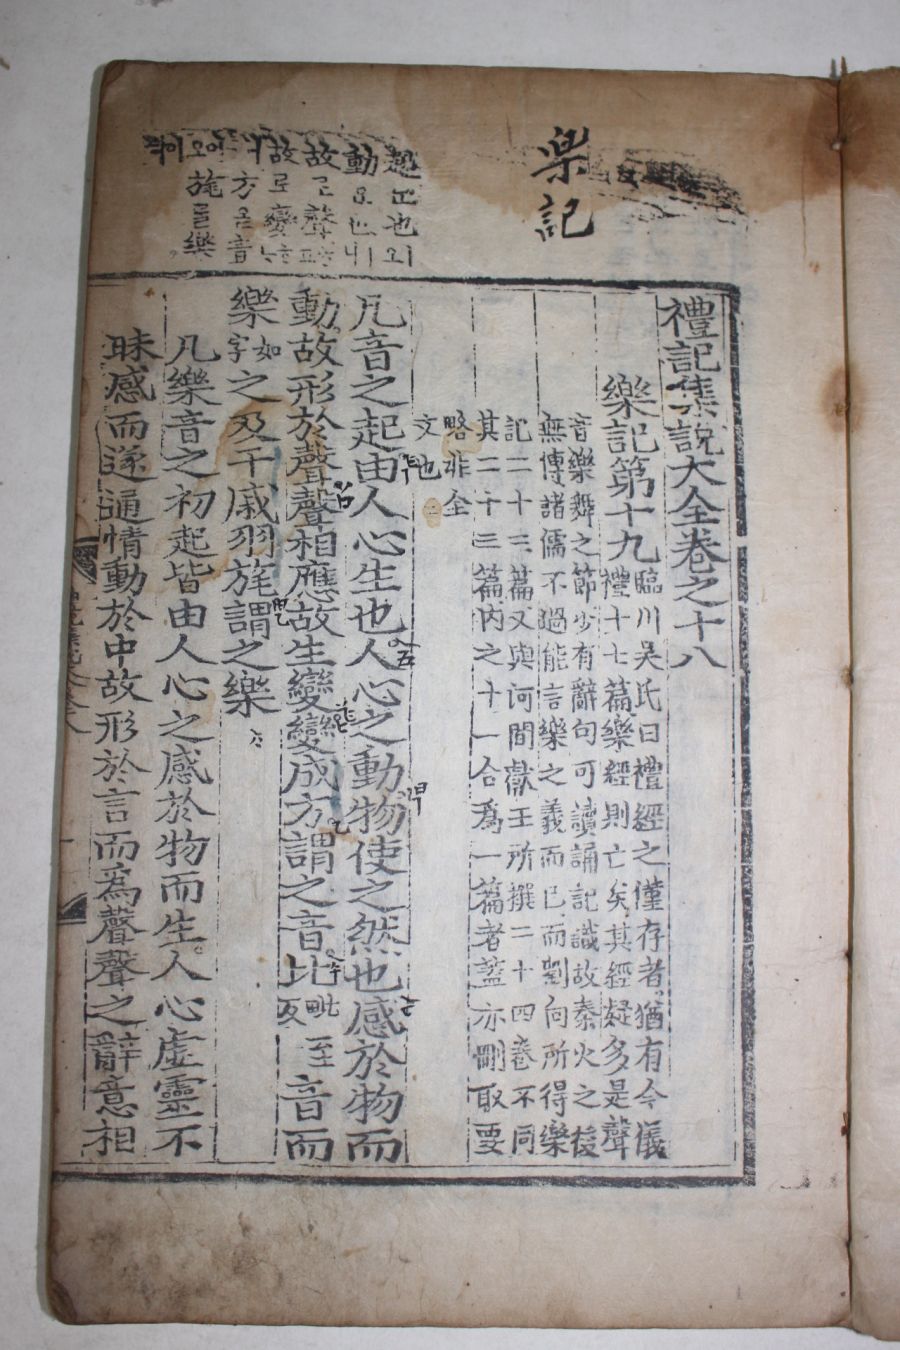 樂記
起 也
動
故 聲
故 變
方 音
旄 樂
禮記集說大全卷之十八
樂記第十九
臨川吳氏曰禮經之僅存者猶有今儀
禮十七篇樂經則亡矣其經疑多是聲
音樂舞之節少有辭句可讀誦記識故秦火之後
無傳諸儒不過能言樂之義而已而劉向所得樂
記二十三篇又與河間獻王所撰二十四卷不同
其二十三篇內之十一合為一篇者蓋亦刪取要
略非全
文也
凡音之起由人心生也人心之動物使之然也感於物而
動故形於聲聲相應故生變變成方謂之音比毗至反音而
樂如字之及干戚羽旄謂之樂
凡樂音之初起皆由人心之感於物而生人心虛靈不
昧感而遂通情動於中故形於言而為聲聲之辭意相